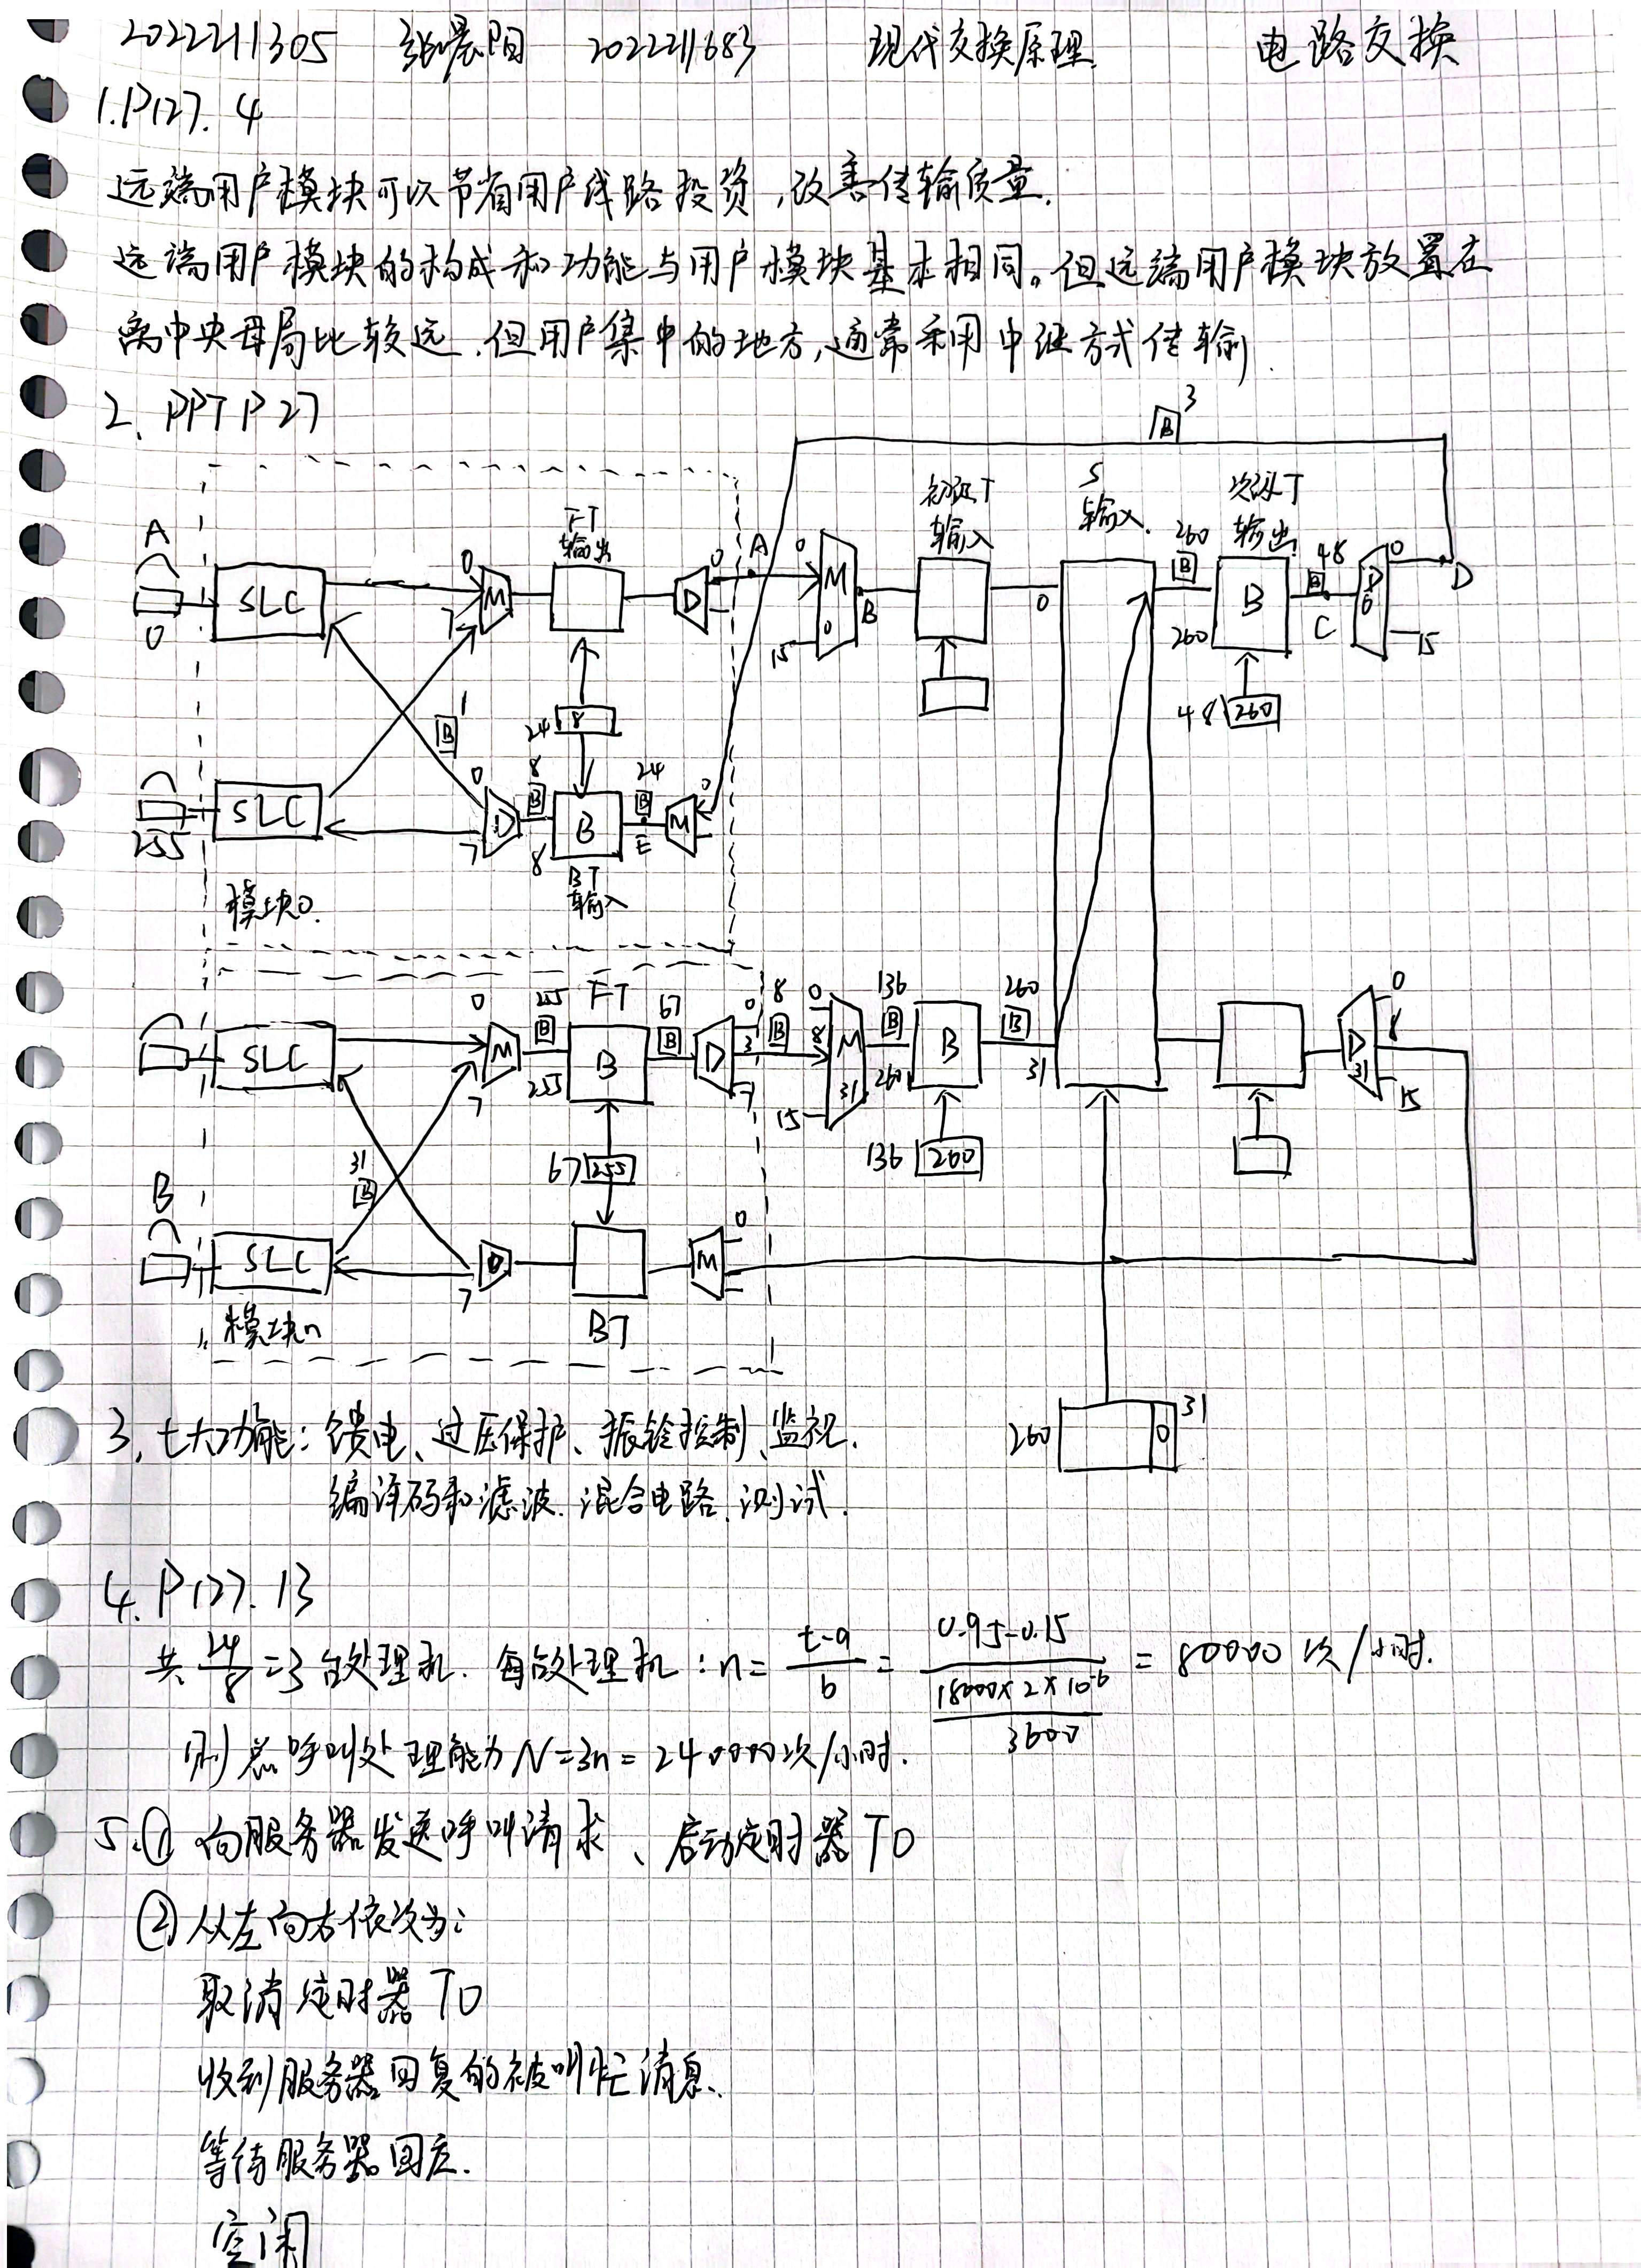 2022211305 张晨阳 2022211683 现代交换原理 电路交换
1.P127. 4
远端用户模块可以节省用户线路投资,改善传输质量.
远端用户模块的构成和功能与用户模块基本相同。但远端用户模块放置在
离中央母局比较远.但用户集中的地方,通常采用中继方式传输.
2. PPT P27
B 3
A
0
SLC
0
7
M
FT
输出
D
0
A
0
15
M
0
B
初级T
输入
0
S
输入.
260
B
260
次级T
输出
B
48
B
C
D
0
0
15
D
48 260
B 1
24 8
255
SLC
0
7
D
8
B
8
B
BT
输入
24
B
E
M
0
模块0.
SLC
0
7
M
255
B
255
FT
B
67
B
D
0
3
7
8
B
0
8
15
M
31
136
B
260
B
260
B
31
D
31
0
8
15
136 260
67 255
31
B
B
SLC
7
D
BT
M
0
模块n
260 0 31
3. 七大功能: 馈电、过压保护、振铃控制、监视.
编译码和滤波.混合电路、测试.
4. P127. 13
共 24/8 =3 台处理机. 每台处理机: n= t-a/b = 0.95-0.15 / (18000×2×10^-6/3600) = 80000 次/小时.
则总呼叫处理能力 N=3n= 240000次/小时.
5.① 向服务器发送呼叫请求、启动定时器T0
② 从左向右依次为:
取消定时器T0
收到服务器回复的被叫忙消息、
等待服务器回应.
空闲